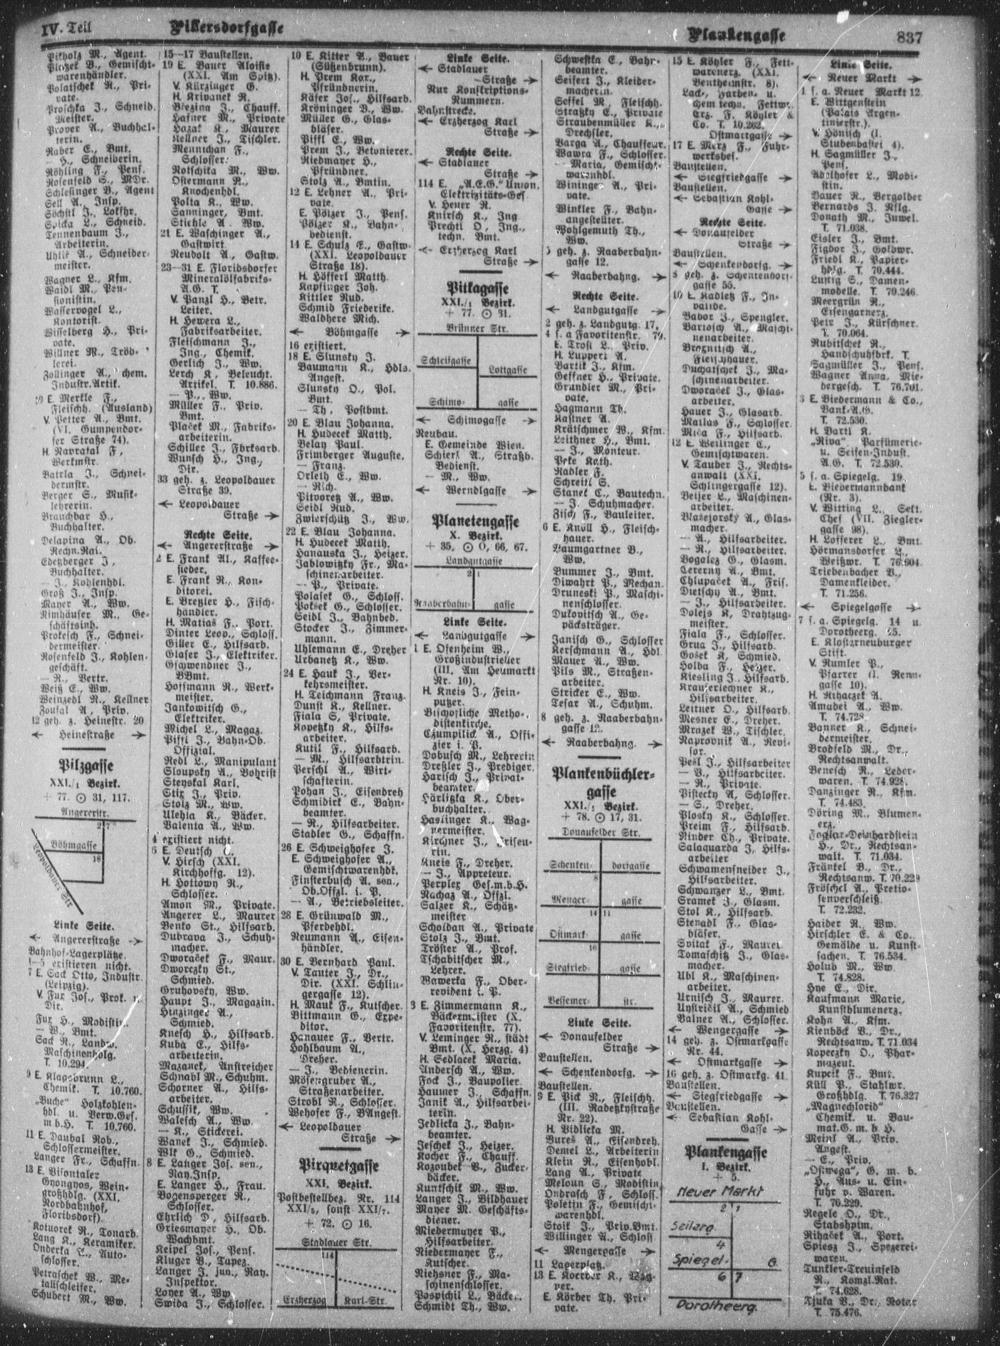 IV. Teil
Pilkersdorfgasse
Plankengasse
837
Pikholz M., Agent.
warenhändler.
Polatschek R., Pri-
vate.
Proschka J., Schneid.
Meister.
Prover A., Buchhal-
terin.
Raber E., Bmt.
— H., Schneiderin.
Röhling F., Penf.
Rosenfeld S., MDr.
Schlesinger B., Agent
Sell A., Insp.
Söchtl J., Lokfhr.
Spicka L., Schneid.
Tennenbaum J.,
Arbeiterin.
Uhlik A., Schneider-
meister.
Wagner L., Kfm.
Waidl M., Pen-
sionistin.
Wasservogel L.,
Kontorist.
Wisselberg H., Pri-
vate.
Willner M., Tröd-
lerei.
Zollinger A., chem.
Industr.Artik.
29 E. Merkle F.,
Fleischh. (Ausland)
V. Petter A., Bmt.
(VI. Gumpendor-
fer Straße 74).
H. Navratal F.,
Werkmstr.
Batrla J., Schnei-
dermstr.
Berger S., Musik-
lehrerin.
Brauchbar H.,
Buchhalter.
Delapina A., Ob.
Rechn.Rat.
Buchhalter.
— J., Kohlenhdl.
Groß J., Insp.
Mayer A., Ww.
Rimhäuser M., Ge-
schäftsinh.
Prokesch F., Schnei-
dermeister.
Rosenfeld J., Kohlen-
geschäft.
— R., Vertr.
Weiß E., Ww.
Weinzedl R., Kellner
Zoufal A., Priv.
12 geh. z. Heinestr. 20
← Heinestraße →
Pilzgasse
XXI./1 Bezirk.
+ 77. ⊙ 31, 117.
Angererstr.
2 7
Böhmgasse
18
Leopoldauer Str
Linke Seite.
← Angererstraße →
Bahnhof-Lagerplätze.
1—5 existieren nicht.
7 E. Sack Otto, Industr.
(Leipzig).
V. Fux Jos., Prok. u.
Dir.
Fux H., Modistin.
— V., Bmt.
Sack R., Landw.
Maschinenhdlg.
T. 10.294.
9 E. Klapsbrunn L.,
Chemik. T. 10.760.
„Buche“ Holzkohlen-
hdl. u. Verw.Ges.
m. b. H. T. 10.760.
11 E. Daubal Rob.,
Schlossermeister.
Langer Fr., Schaffn.
13 E. Bisontaler
Gyongyos, Wein-
großhdlg. (XXI.
Nordbahnhof,
Floridsdorf).
Kotuorek R., Tonard.
Lang K., Keramiker.
Onderka L., Auto-
schlosser.
Petraschek W., Me-
tallschleifer.
Schubert M., Ww.
15—17 Baustellen.
19 E. Bauer Aloisie
(XXI. Am Spitz).
V. Kürzinger G.
H. Krivanek R.
Brezina J., Chauff.
Hafner M., Private
Hazat K., Maurer
Kellner J., Tischler.
Mennichan F.,
Schlosser.
Rotschka M., Ww.
Ostermann R.,
Knochenhdl.
Polta K., Ww.
Sanninger, Bmt.
Stichle A., Ww.
21 E. Waschinger A.,
Gastwirt.
Neubolt A., Gastw.
23—31 E. Floridsdorfer
Mineralölfabriks-
A.G. T.
V. Panzl H., Betr.
Leiter.
H. Hewera L.,
Fabriksarbeiter.
Fleischmann J.,
Ing., Chemik.
Gerlich J., Ww.
Lerch K., Beleucht.
Artikel. T. 10.886.
— P., Ww.
Müller F., Priv.
Bmt.
Placek M., Fabriks-
arbeiterin.
Schiller J., Fbrksarb.
Wunsch H., Ing.,
Dir.
33 geh. z. Leopoldauer
Straße 39.
← Leopoldauer
Straße →
Rechte Seite.
← Angererstraße →
2 E. Frank Al., Kaffee-
sieder.
E. Frank R., Kon-
ditorei.
E. Breßler H., Fisch-
händler.
H. Matias F., Port.
Dinter Leop., Schloss.
Giller E., Hilfsarb.
Glaser J., Elektriker.
Gjaywendner J.,
BBmt.
Hoffmann R., Werk-
meister.
Jankowitsch G.,
Elektriker.
Michel L., Magaz.
Piffl J., Bahn-Ob.
Offizial.
Redl L., Manipulant
Sloupsky A., Bohrist
Steyskal Karl.
Stiz J., Priv.
Stolz M., Ww.
Ulehla K., Bäcker.
Valenta A., Ww.
4 existiert nicht.
6 E. Deutsch
V. Hirsch (XXI.
Kirchhoffg. 12).
H. Hottowy R.,
Schlosser.
Amon M., Private.
Angerer L., Maurer
Bento St., Hilfsarb.
Dubrava J., Schuh-
macher.
Dworacek F., Maur.
Dworezky St.,
Schmied.
Gruhovsky, Ww.
Haupt J., Magazin.
Hinzinger A.,
Schmied.
Knesch H., Hilfsarb.
Kuba C., Hilfs-
arbeiterin.
Mazanek, Anstreicher
Schnabl M., Schuhm.
Schorner A., Hilfs-
arbeiter.
Schussik, Ww.
Walesch A., Ww.
— K., Stickerei.
Wanek J., Schmied.
Wolf G., Schmied.
8 E. Langer Jos. sen.,
Ray.Insp.
E. Langer H., Frau.
Bogensperger R.,
Schlosser.
Ehrlich D., Hilfsarb.
Griesmayer H., Ob.
Wachbmt.
Keipel Jos., Penf.
Kluger B., Tapez.
Langer J. jun., Ray.
Inspektor.
Loyer A., Ww.
Swida J., Schlosser.
10 E. Ritter A., Bauer
(Süßenbrunn).
H. Prem Kor.,
Pfründnerin.
Käfer Jos., Hilfsarb.
Kröninger B., Ww.
Müller G., Glas-
bläser.
Piffl E., Ww.
Prem J., Betonierer.
Riedmayer H.,
Pfründner.
Stolz A., Bmtin.
12 E. Lehner A., Pri-
vate.
E. Pölzer J., Penf.
Pölzer K., Bahn-
bedienst.
14 E. Schulz E., Gastw.
(XXI. Leopoldauer
Straße 18).
H. Höfferl Matth.
Kapfinger Joh.
Kittler Rud.
Schmid Friederike.
Waldhere Mich.
← Böhmgasse →
16 existiert.
18 E. Slunsky J.
Baumann K., Hdls.
Angest.
Slunsky O., Pol.
Bmt.
— Th., Postbmt.
20 E. Blau Johanna.
H. Hudecek Matth.
Belan Paul.
Frimberger Auguste.
— Franz.
Orleth E., Ww.
— Rich.
Pitvoretz A., Ww.
Seidl Rud.
Zwierschütz J., Ww.
22 E. Blau Johanna.
H. Hudecek Matth.
Hanauska J., Heizer.
Jablowitzky Fr., Ma-
schinenarbeiter.
— P., Private.
Polasek G., Schlosser.
Pokset G., Schlosser.
Seidl J., Bahnbed.
Stocker J., Zimmer-
mann.
Uhlemann E., Dreher
Urbanetz K., Ww.
24 E. Hauk J., Ver-
kehrsmeister.
H. Teichmann Franz.
Dunst K., Kellner.
Fiala S., Private.
Kopetzky K., Hilfs-
arbeiter.
Kutil F., Hilfsarb.
— M., Hilfsarbtrin.
Perschl A., Wirt-
schafterin.
Pohan J., Eisendreh
Schmidirk E., Bahn-
beamter.
Stadler G., Schaffn.
26 E. Schweighofer J.
E. Schweighofer A.,
Gemischtwarenhdk.
Finsterbusch A. sen.,
Ob.Offzl. i. P.
— A., Betriebsleiter.
28 E. Grünwald M.,
Pferdehdl.
Neumann A., Eisen-
händler.
30 E. Bernhard Paul.
V. Tanter J., Dr.,
Dir. (XXI. Schlin-
gergasse 12).
H. Mauk F., Kutscher.
Bittmann G., Expe-
ditor.
Hanauer F., Vertr.
Hohlbaum A.,
Dreher.
— J., Bedienerin.
Mösengruber A.,
Straßenarbeiter.
Strobl R., Schlosser.
Wehofer F., BAngest.
← Leopoldauer
Straße →
Pirquetgasse
XXI. Bezirk.
Postbestellbez. Nr. 114
XXI/5, sonst XXI/7.
+ 72, ⊙ 16.
Stadlauer Str.
114
Erzherzog Karl-Str.
Linke Seite.
← Stadlauer
Straße →
Nur Konskriptions-
Nummern.
Bahnstrecke.
← Erzherzog Karl
Straße →
Rechte Seite.
← Stadlauer
Straße →
114 E. „A.E.G.“ Union,
Elektrizitäts-Ges.
V. Heuer R.
Knirsch K., Ing
Prechtl O., Ing.,
techn. Bmt.
← Erzherzog Karl
Straße →
Pitkagasse
XXI./1 Bezirk.
+ 77. ⊙ 31.
Brünner Str.
Schleifgasse
Lottgasse
Schimo- gasse
← Schimogasse →
Neubau.
E. Gemeinde Wien.
Schierl A., Straßb.
Bedienst.
— M., Ww.
← Werndlgasse →
Planetengasse
X. Bezirk.
+ 35, ⊙ O, 66, 67.
Landgutgasse
2 1
Raaberbahn- gasse
Linke Seite.
← Landgutgasse →
1 E. Ofenheim W.,
Großindustrieller
(III. Am Heumarkt
Nr. 10).
H. Kneis J., Fein-
putzer.
Bischöfliche Metho-
distenkirche.
Czumpilik A., Offi-
zier i. P.
Dobusch M., Lehrerin
Dreßler J., Prediger.
Harisch J., Privat-
beamter.
Härlitzka K., Ober-
buchhalter.
Haslinger K., Wag-
nermeister.
Kirchner J., Friseu-
rin.
Kneis F., Dreher.
— J., Appreteur.
Perplex Ges.m.b.H.
Rachaz A., Offzl.
Salzer K., Schätz-
meister
Scholdan A., Private
Stolz J., Bmt.
Tröster A., Prof.
Tschabitscher M.,
Lehrer.
Wawerka F., Ober-
revident i. P.
3 E. Zimmermann K.,
Bäckermister (X.
Favoritenstr. 77).
V. Leminger R., städt
Bmt. (X. Herzg. 4)
H. Sedlacek Maria.
Andersch A., Ww.
Fock J., Baupolier.
Haumer J., Schaffn.
Janik A., Hilfsarbei-
terin.
Jedlicka J., Bahn-
beamter.
Jeschek J., Heizer.
Kocher F., Chauff.
Kozoubek B., Zucker-
bäcker.
Kuntschik M., Ww.
Langer J., Bildhauer
Mayer M., Geschäfts-
diener.
Niedermayer P.,
Hilfsarbeiter.
Niedermayer F.,
Kutscher.
Riehsner F., Ma-
schinenschlosser.
Pospichil L., Bäcker.
Schmidt Th., Ww.
Schwestka E., Bahr-
beamter.
Seifert J., Kleider-
macherin.
Seffel M., Fleischh.
Straßky E., Private
Straubenmüller K.,
Drechsler.
Varga A., Chauffeur.
Wawra F., Schlosser.
— Maria, Gemischt-
warenhdl.
Wininger A., Pri-
vate.
Winkler F., Bahn-
angestellter.
Wohlgemuth Th.,
Ww.
5 geh. z. Raaberbahn-
gasse 12.
← Raaberbahng. →
Rechte Seite.
← Landgutgasse →
2 geh. z. Landgutg. 17.
4 s. a. Favoritenstr. 79.
E. Trost L., Priv.
H. Luppert A.
Bartik J., Kfm.
Geffner H., Private.
Grandler M., Pri-
vate.
Hagmann Th.
Kastner A.
Krätschmer W., Kfm.
Leithner H., Bmt.
— J., Monteur.
Peke Kath.
Radler F.
Schreitl S.
Stanek C., Bautechn.
— J., Schuhmacher.
Zisch F., Bauleiter.
6 E. Knoll H., Fleisch-
hauer.
Baumgartner B.,
Ww.
Bummer J., Bmt.
Diwahrt P., Mechan.
Drunesky P., Maschi-
nenschlosser.
Dukovitsch A., Ge-
päcksträger.
Janisch G., Schlosser
Kerschmann A., Hdl
Mauer A., Ww.
Pils M., Straßen-
arbeiter.
Stricker E., Ww.
Tesar A., Schuhm.
8 geh. z. Raaberbahn-
gasse 12.
← Raaberbahng. →
Plankenbüchler-
gasse
XXI./1 Bezirk.
+ 78. ⊙ 17, 31.
Donaufelder Str.
Schenken- dorfgasse
8
Wenger- gasse
14 11
Ostmark- gasse
16
Siegfried- gasse
Bessemer- str.
Linke Seite.
← Donaufelder
Straße →
Baustellen.
← Schenkendorfg. →
Baustellen.
9 E. Pick R., Fleischh.
(III. Radetzkystraße
Nr. 22).
H. Biblicka M.
Bures A., Eisendreh.
Demel L., Arbeiterin
Klein R., Eisenhobl.
Lang A., Private.
Meloun S., Modistin
Ondrasch F., Schloss.
Poletin F., Gemischt-
warenhdl.
Stoik J., Priv.Bmt.
Willinger A., Schloss
← Mengergasse →
11 Lagerplatz.
13 E. Koerber K., Wag-
ner.
E. Körber Th., Pri-
vate.
15 E. Köhler F., Fett-
warenerz. (XXI.
Bentheimstr. 8).
Lack-, Farben- u.
chem.techn. Fettw.
Erz. F. Köhler &
Co. T. 10.262.
Ostmarkgasse →
17 E. Merz F., Fuhr-
werksbes.
Baustellen.
← Siegfriedgasse →
Baustellen.
← Sebastian Kohl-
Gasse →
Rechte Seite.
← Donaufelder
Straße →
Baustellen.
← Schenkendorfg. →
8 geh. z. Schenkendorf-
gasse 55.
10 E. Kadletz F., In-
valide.
Babor J., Spengler.
Bartosch A., Maschi-
nenarbeiter.
Breznitsch A.,
Fleischhauer.
Duchatschek J., Ma-
schinenarbeiter.
Dworacek J., Glas-
arbeiter.
Hauer J., Glasarb.
Matlas F., Schlosser.
Mica F., Hilfsarb.
12 E. Weilinger C.,
Gemischtwaren.
V. Tauber J., Rechts-
anwalt (XXI.
Schlingergasse 12).
Beijer L., Maschinen-
arbeiter.
Blasejorsky A., Glas-
macher.
— A., Hilfsarbeiter.
— R., Hilfsarbeiter.
Bogolez G., Glasm.
Cerenny A., Bmt.
Chlupacek A., Fris.
Dietschy A., Bmt.
— J., Hilfsarbeiter.
Dolejs K., Drahtzug-
meister.
Fiala F., Schlosser.
Grua J., Hilfsarb.
Gosek K., Schmied.
Holda F., Heizer.
Kiesling J., Hilfsarb.
Krauterleichner K.,
Hilfsarbeiter.
Leitner O., Hilfsarb.
Mesner E., Dreher.
Mrazek W., Tischler.
Naprovnik A., Revi-
sor.
Pesl J., Hilfsarbeiter
— B., Hilfsarbeiter.
— R., Private.
Pistecky A., Schlosser.
— S., Dreher.
Plosky K., Schlosser
Preim F., Hilfsarb.
Rinder Ch., Private
Salaquarda J., Hilfs-
arbeiter
Schwamenschneider J.,
Hilfsarbeiter.
Schwanzer L., Bmt.
Sramek J., Glasm.
Stol K., Hilfsarb.
Stenadl F., Glas-
bläser.
Svitat F., Maurer.
Tomaschitz J., Glas-
macher.
Ubl K., Maschinen-
arbeiter.
Urnisch J., Maurer.
Valner A., Schlosser.
← Wengergasse →
14 geh. z. Ostmarkgasse
Nr. 44.
← Ostmarkgasse →
16 geh. z. Ostmarkg. 41
Baustellen.
← Siegfriedgasse →
Baustellen.
← Sebastian Kohl-
Gasse →
Plankengasse
1. Bezirk.
+ 5.
Neuer Markt
2 1
Seilerg.
4
Spiegel- G.
6 7
Dorotheerg.
Linke Seite.
← Neuer Markt →
1 s. a. Neuer Markt 12.
E. Wittgenstein
(Palais Argen-
tinierstr.).
V. Hönisch (I.
Stubenbastei 4).
H. Sagmüller J.,
Penf.
Adlhofer L., Modi-
stin.
Bauer R., Bergolder
Bernards J. Nflg.
Donath M., Juwel.
T. 71.038.
Eisler J., Bmt.
Figdor J., Goldwr.
Friedl K., Papier-
hdlg. T. 70.444.
Lustig S., Damen-
modelle. T. 70.246.
Meergrün R.,
Eisengarnerz.
Petr J., Kürschner.
T. 70.064.
Rubitschek R.,
Handschuhfbrk. T.
Sagmüller J., Penf.
Wagner Anna, Mie-
dergesch. T. 76.701.
3 E. Biedermann & Co.,
Bank-A.G.
T. 72.530.
H. Bartl K.
„Riva“ Parfümerie-
u. Seifen-Indust.
A.G. T. 72.530.
5 s. a. Spiegelg. 19.
E. Biedermannbank
(Nr. 3).
V. Witting L., Sekt.
Chef (VII. Ziegler-
gasse 98).
H. Lofferer L., Bmt.
Hörmansdorfer L.,
Weißwr. T. 76.904.
Triebenbacher V.,
Damenkleider.
T. 71.256.
← Spiegelgasse →
7 s. a. Spiegelg. 14 u.
Dorotheerg. 25.
E. Klosterneuburger
Stift.
V. Rumler P.,
Pfarrer (I. Renn-
gasse 10).
H. Rihacek A.
Amadei A., Ww.
T. 74.728.
Banner K., Schnei-
dermeister.
Brodfeld M., Dr.,
Rechtsanwalt.
Benesch R., Leder-
waren. T. 74.928.
Danzinger R., Kfm.
T. 74.483.
Döring M., Blumen-
erz.
Foglar-Deinhardstein
H., Dr., Rechtsan-
walt. T. 71.034.
Fränkel B., Dr.,
Rechtsanw. T. 70.228
Fröschel A., Pretio-
senverschleiß.
T. 72.232.
Haider R., Ww.
Hirschler E. & Co.,
Gemälde u. Kunst-
sachen. T. 76.534.
Holub M., Ww.
T. 74.828.
Hye E., Dir.
Kaufmann Marie,
Kunstblumenerz.
Kohn A., Kfm.
Kienböck B., Dr.,
Rechtsanw. T. 71.034
Kopetzky O., Phar-
mazeut.
Kupeik F., Bmt.
Küll P., Stahlwr.
Großhdlg. T. 76.327
„Magnechlorid“
Chemik. u. Bau-
mat.G. m. b. H.
Meinl A., Priv.
Angest.
— E., Priv.
„Ostwega“, G. m. b.
H., Aus- u. Ein-
fuhr v. Waren.
T. 76.229.
Regele O., Dr.,
Stabshptm.
Rihacek A., Port.
Spiesz J., Spezerei-
waren.
Tunkler-Treuinfeld
R., Komzl.Rat.
T. 74.628.
Zjuka B., Dr., Notar
T. 75.476.